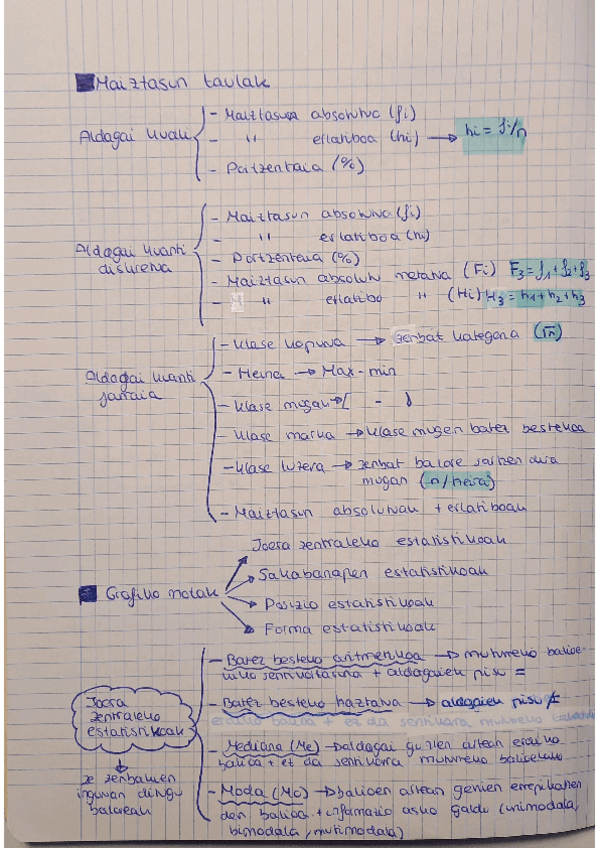 Maiztasun taulak
Aldagai kuali
- Maiztasuna absolutua (fi)
- " erlatiboa (hi) → hi = fi/n
- Portzentaia (%)
Aldagai kuanti diskretua
- Maiztasun absolutua (fi)
- " erlatiboa (hi)
- Portzentaia (%)
- Maiztasun absolutu metatua (Fi) F3 = f1 + f2 + f3
- " erlatibo " (Hi) H3 = h1 + h2 + h3
Aldagai kuanti jarraia
- Klase kopurua → zenbat kategoria (√n)
- Heina → Max - min
- Klase mugak → [ - )
- Klase marka → klase mugen batez bestekoa
- Klase luzera → zenbat balore sartzen dira
mugan (n/heina)
- Maiztasun absolutuak + erlatiboak
Grafiko motak
Joera zentraleko estatistikoak
Sakabanapen estatistikoak
Posizio estatistikoak
Forma estatistikoak
Joera
zentraleko
estatistikoak
ze zenbakien
inguruan dingu
baloreak
- Batez besteko aritmetikoa → muturreko balioe-
kiko sentikortasuna + aldagaien pisu =
- Batez besteko haztatua → aldagaien pisu ≠
erdiko balioa + ez da sentikorra muturreko
- Mediana (Me) → aldagai guztien artean erdiko
balioa + ez da sentikorra muturreko balioekiko
- Moda (Mo) → balioen artean gehien errepikatzen
den balioa + informazio asko galdu (unimodala,
bimodala, multimodala)